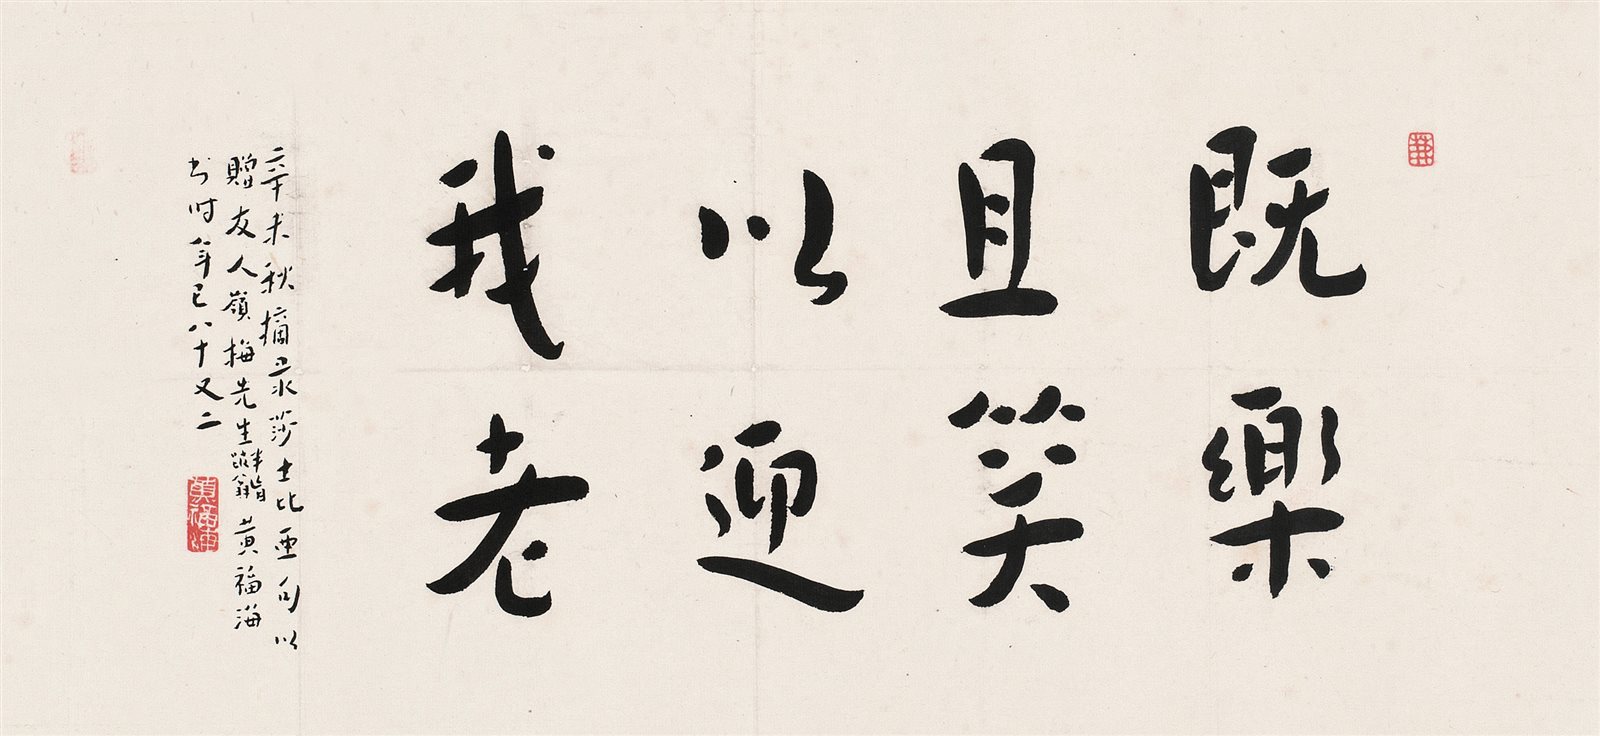 既樂
且笑
以迎
我老
辛未秋摘录莎士比亞句以
贈友人嶺梅先生 黄福海
书时年已八十又二
黄福海